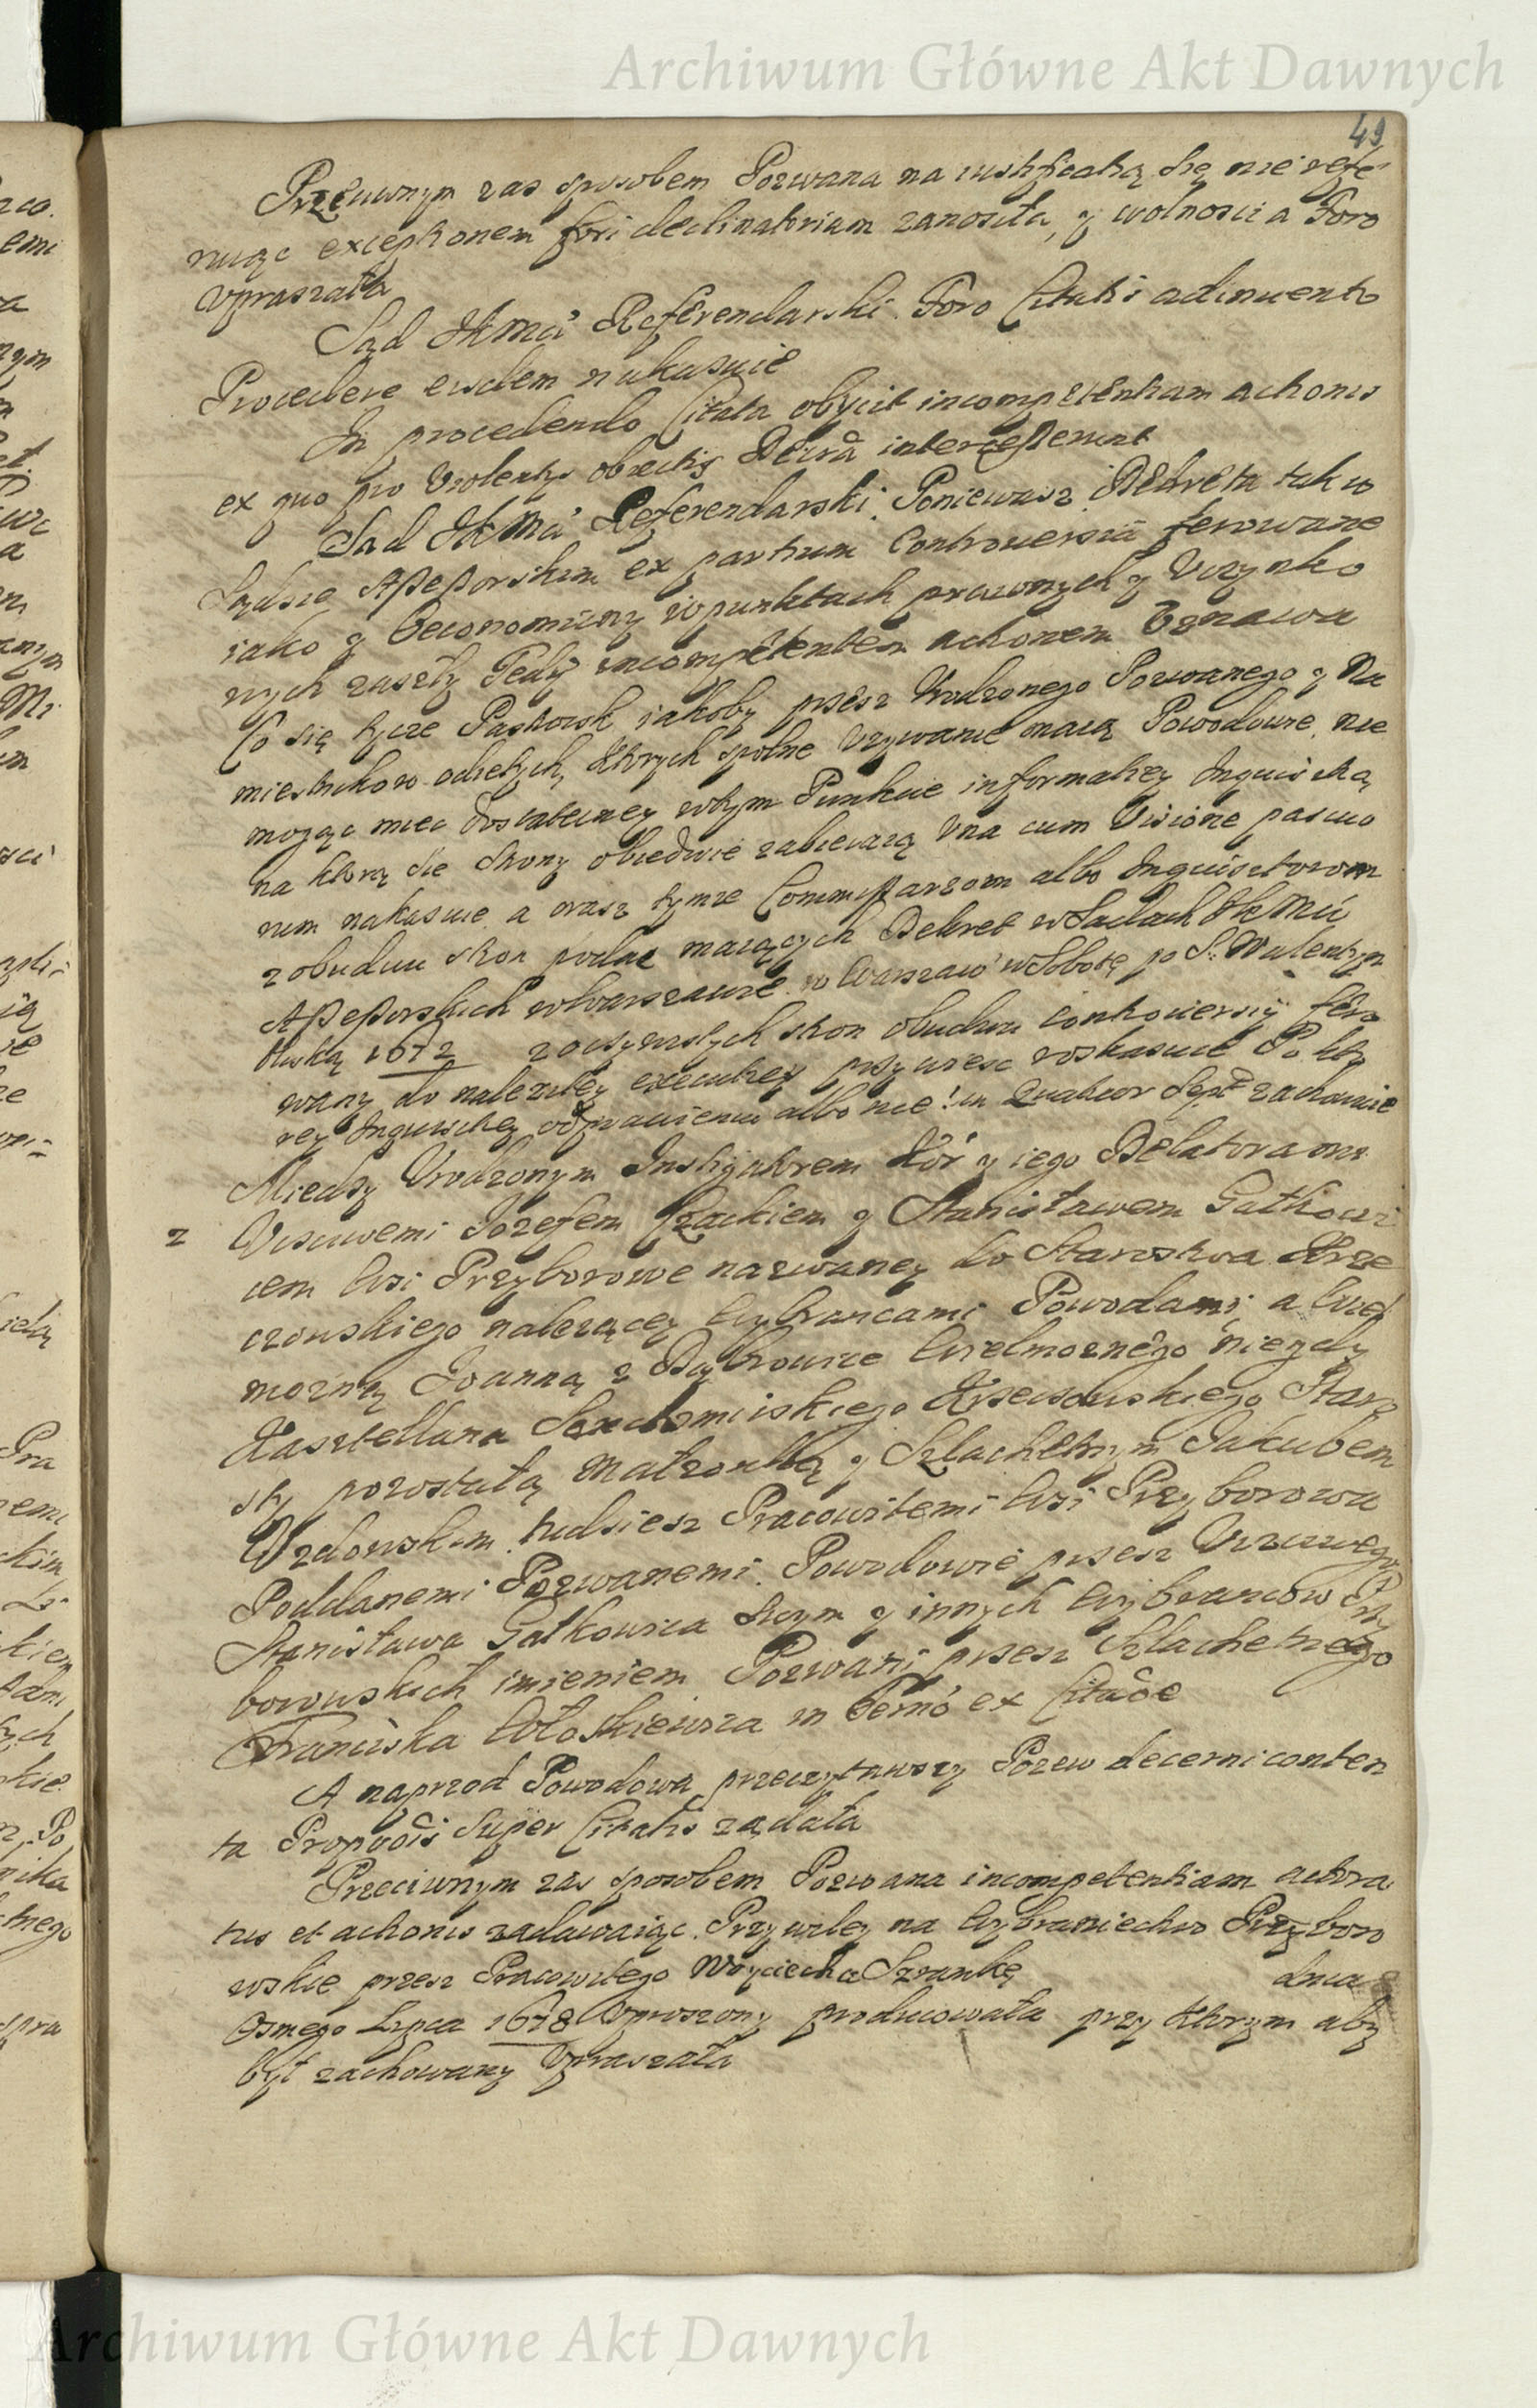 Archiwum Główne Akt Dawnych
49
Przeciwnym zas sposobem Pozwana na iustifficatią się nie refe
ruiąc exceptionem fori declinatoriam zanosiła, y wolnosci a Foro
Vpraszała
Sąd JKMci Referendarski. Foro Citatis adinvento
Procedere eisdem nakazuie
In procedendo Citata obijcit incompetentiam actionis
ex quo pro Violentijs obiectis Decra intercesserunt
Sąd JKMci Referendarski. Poniewasz Dekreta tak w
Sądzie Assessorskim ex partium Controversia ferowane
iako y Oeconomiczny w punktach prawnych y Vczynko
wych zaszły Tedy incompetentem actionem Vznawa
Co się tycze Pastwisk iakoby przesz Vrodzonego Pozwanego y Na
miesnikow odietych, ktorych spolne Vzywanie maią Powodowie, nie
mogąc miec dostateczney wtym Punkcie informatiey Inquisitią
na ktorą sie Strony obiedwie zabieraią Vna cum Visione pascuo
rum nakazuie, a orasz tymze Commissarzom albo Inquisitorom
z obudwu stron podac maiących Dekret w Sądach JKMci
Assessorskich w Warszawie w Warszaw w Sobotę po S. Walentym
bliską 1672 z oczywistych stron obudwu controwersiy fero
wany do nalezitey executiey przywiesc roskazuie Po kto
rey Inquisitiey odprawieniu albo nie! in Quatuor Sept zachowuie
Miedzy Vrodzonym Instigatorem Kor y iego Delatorami
2 Vcsciwemi Jozefem Czackiem y Stanisławem Gatkowi
cem wsi Przyborowe nazwaney do Starostwa Krze
czowskiego nalezącey wybrancami Powodami, a Wiel
mozną Joanną z Dąbrowice Wielmoznego niegdy
Kasztellana Sendomirskiego Krzeczowskiego Staro
sty pozostałą Małzonką y Szlachetnym Jakubem
Wzdowskim tudziesz Pracowitemi wsi Przyborowa
Poddanemi Pozwanemi. Powodowie przesz Vczciwego
Stanisława Gatkowica swym y innych wybrancow Przy
borowskich imieniem Pozwani przesz Szlachetnego
Franciszka Wołoskiewica in termo ex Citaoe
A naprzod Powodowa przeczytawszy Pozew decerni conten
ta Propoois Super Citatis ządała
Przeciwnym zas sposobem Pozwana incompetentiam actora
tus et actionis zadawaiąc. Przywiley na wybraniectwo Przyboro
wskie przesz Pracowitego Woyciecha Szrankę dnia
Osmego Lipca 1678 Vproszony producowała przy ktorym aby
był zachowany Vpraszała
Archiwum Główne Akt Dawnych